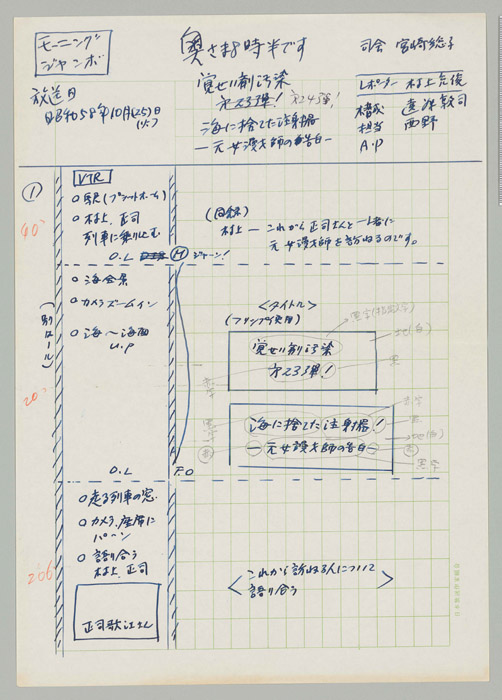 モーニング
ジャンボ
奥さま8時半です
司会 宮崎総子
レポーター 村上克俊
放送日
昭和58年10月(25)日
(火)
覚せい剤汚染
第23弾! 第24弾!
海に捨てた注射器
―元女護士師の告白―
構成
担当 西野
A.P
①
VTR
○駅(プラットホーム)
○村上、正司
列車に乗り込む
O.L
(同録)
村上― これから正司さんと一緒に
元女護士師を訪ねるのです。
40"
Ⓗ ジャーン!
○海全景
○カメラズームイン
○海〜海面
U.P
(別ロール)
20"
<タイトル>
(フリップ使用)
覚せい剤汚染
第23弾!
海に捨てた注射器!
―元女護士師の告白―
地(白)
黒
赤字
黒字
O.L
F.O
○走る列車の窓
○カメラ、座席に
パーン
○語り合う
村上、正司
206"
正司歌江さん
これから訪ねる人について
語り合う